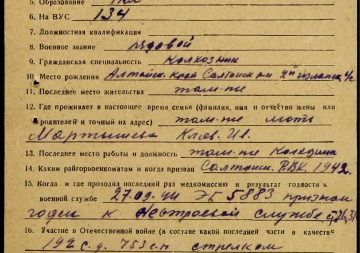 5. Образование
6. На ВУС 134
7. Должностная квалификация
8. Военное звание рядовой
9. Гражданская специальность Колхозник
10. Место рождения Алтайск. Край Солтонск. р-н
11. Последнее место жительства там-же
12. Где проживает в настоящее время семья (фамилия, имя и отчество жены или
родителей и точный их адрес) там-же мать
Мартышева
13. Последнее место работы и должность там-же Колхозник
14. Каким райгорвоенкоматом и когда призван Солтонск. РВК. 1942.
15. Когда и где проходил последний раз медкомиссию и результат годности к
военной службе 27.09.44 ЭГ 5883 признан
годен к нестроевой службе
16. Участие в Отечественной войне (в составе какой последней части в качестве
192 с.д. 753 с.п. стрелком